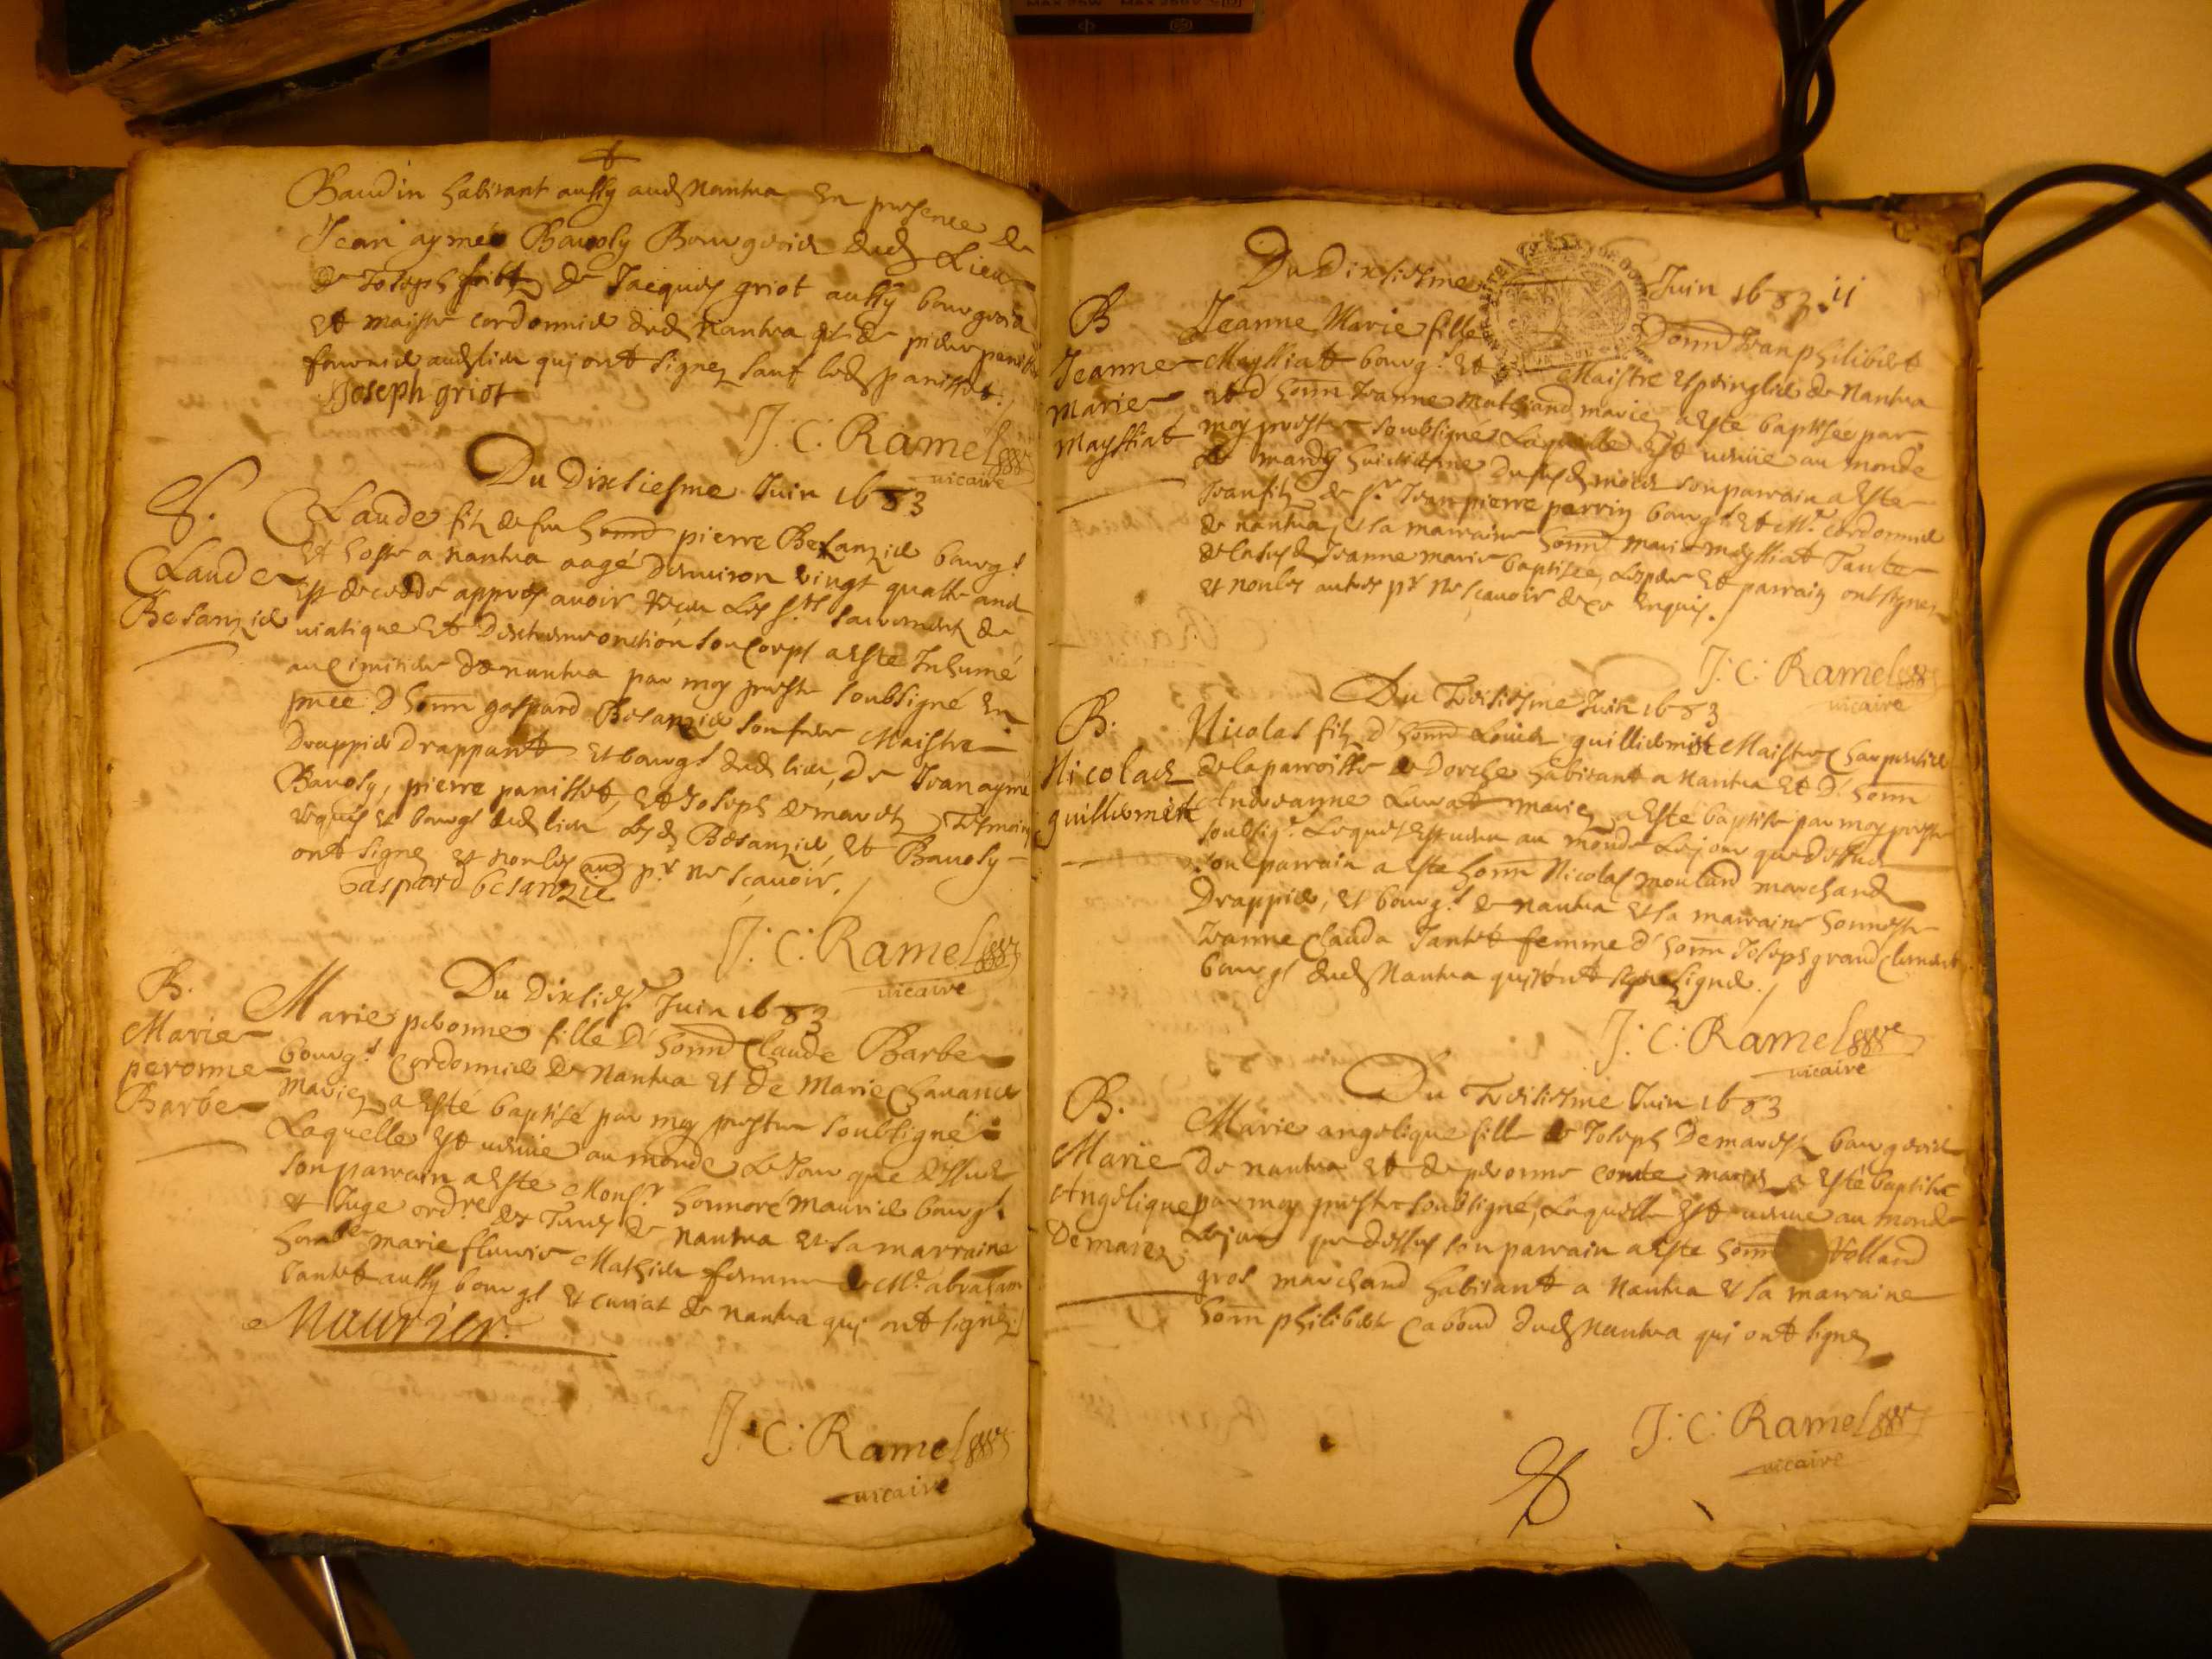 Baudin habitant aussy aud Nantua En presence de
Jean aymé Bavoly Bourgeois dud Lieu
de Joseph de Jacques griot aussy bourgeois
Et maistre cordonnier dud Nantua et de pierre
aud lieu qui ont signez sauf led panisset.
Joseph griot
J: C: Ramel
vicaire
Du Dixsiesme Juin 1683
S.
Claude
Besanzier
Claude filz de feu honn pierre Besanzier bourgs
Et hoste a nantua aagé denviron vingt quattre ans
Est decedé appres avoir receu Les sts sacrements de
viatique Et Dextreme onction son Corps a Este Inhumé
au Cimitiere de nantua par moy prestre soubsigné En
pnce D honn gaspard Besanzier son frere Maistre
Drappier Drappant Et bourgs dud lieu, De Jean aymé
Bavoly, pierre panisset, Et Joseph demarest Tesmoins
requis Et bourgs dud lieu Lesd Besanzier, Et Bavoly
ont signez et non les aues pr ne scavoir.
Gaspard besanzie
J: C: Ramel
vicaire
Du Dixsiesme Juin 1683
B.
Marie
peronne
Barbe
Marie peronne fille D' honn Claude Barbe
bourgs Cordonnier De Nantua Et De Marie Chavance
Mariez, a Esté baptisé par moy prestre soubsigné
Laquelle Est venüe au monde Le Jour que dessus
son parrain a Este Monsr honnoré Maurier bourgs
et Juge ordre des Terres de nantua Et la marraine
marie fleurie Mathieu femme de Me abraham
Jantet aussy bourgs Et curiat de nantua qui ont signez
Maurier.
J: C: Ramel
vicaire
Du Dixsiesme Juin 1683. 11
B
Jeanne
Marie
Maylliat
Jeanne Marie fille D honn Jean philibert
Maylliat bourgs Et Maistre Espinglier de Nantua
et d honn Jeanne mathiand mariez a Este baptisee par
moy prestre soubsigné Laquelle Est venüe au monde
Le mardy huictiesme Dususd mois son parrain a Este
Jean filz de sr Jean pierre perrin bourgs Et Me Cordonnier
de nantua, Et la marraine honn marie maylliat Tante
de lasusd Jeanne marie baptisee, Le pere Et parrain ont signez
Et non les autres pr ne scavoir de ce Enquis.
J: C: Ramel
vicaire
Du Treisiesme Juin 1683
B.
Nicolas
guillermet
Nicolas filz d honn Louis guilliermet Maistre Charpentier
de la parroisse de Dorche habitant a Nantua Et D' honn
Andreanne mariez a Esté baptisé par moy prestre
soubsigé. Lequel Est venu au monde Le jour que dessus
son parrain a Este honn Nicolas moulard marchand
Drappier, Et bourgs de nantua Et la marraine honneste
Jeanne Clauda Jantet femme d' honn Joseph grand Clement
bourgs dud Nantua qui ont signé.
J: C: Ramel
vicaire
Du Treisiesme Juin 1683
B.
Marie
Angelique
Demarez
Marie angelique fille de Joseph Demarest bourgeois
De nantua Et de peronne conte mariez a Esté baptisée
par moy prestre soubsigné, Laquelle Est venüe au monde
Le jour que dessus son parrain a Este honn Rolland
gros marchand habitant a Nantua Et la marraine
honn philiberte Caboud dud Nantua qui ont signez
J: C: Ramel
vicaire